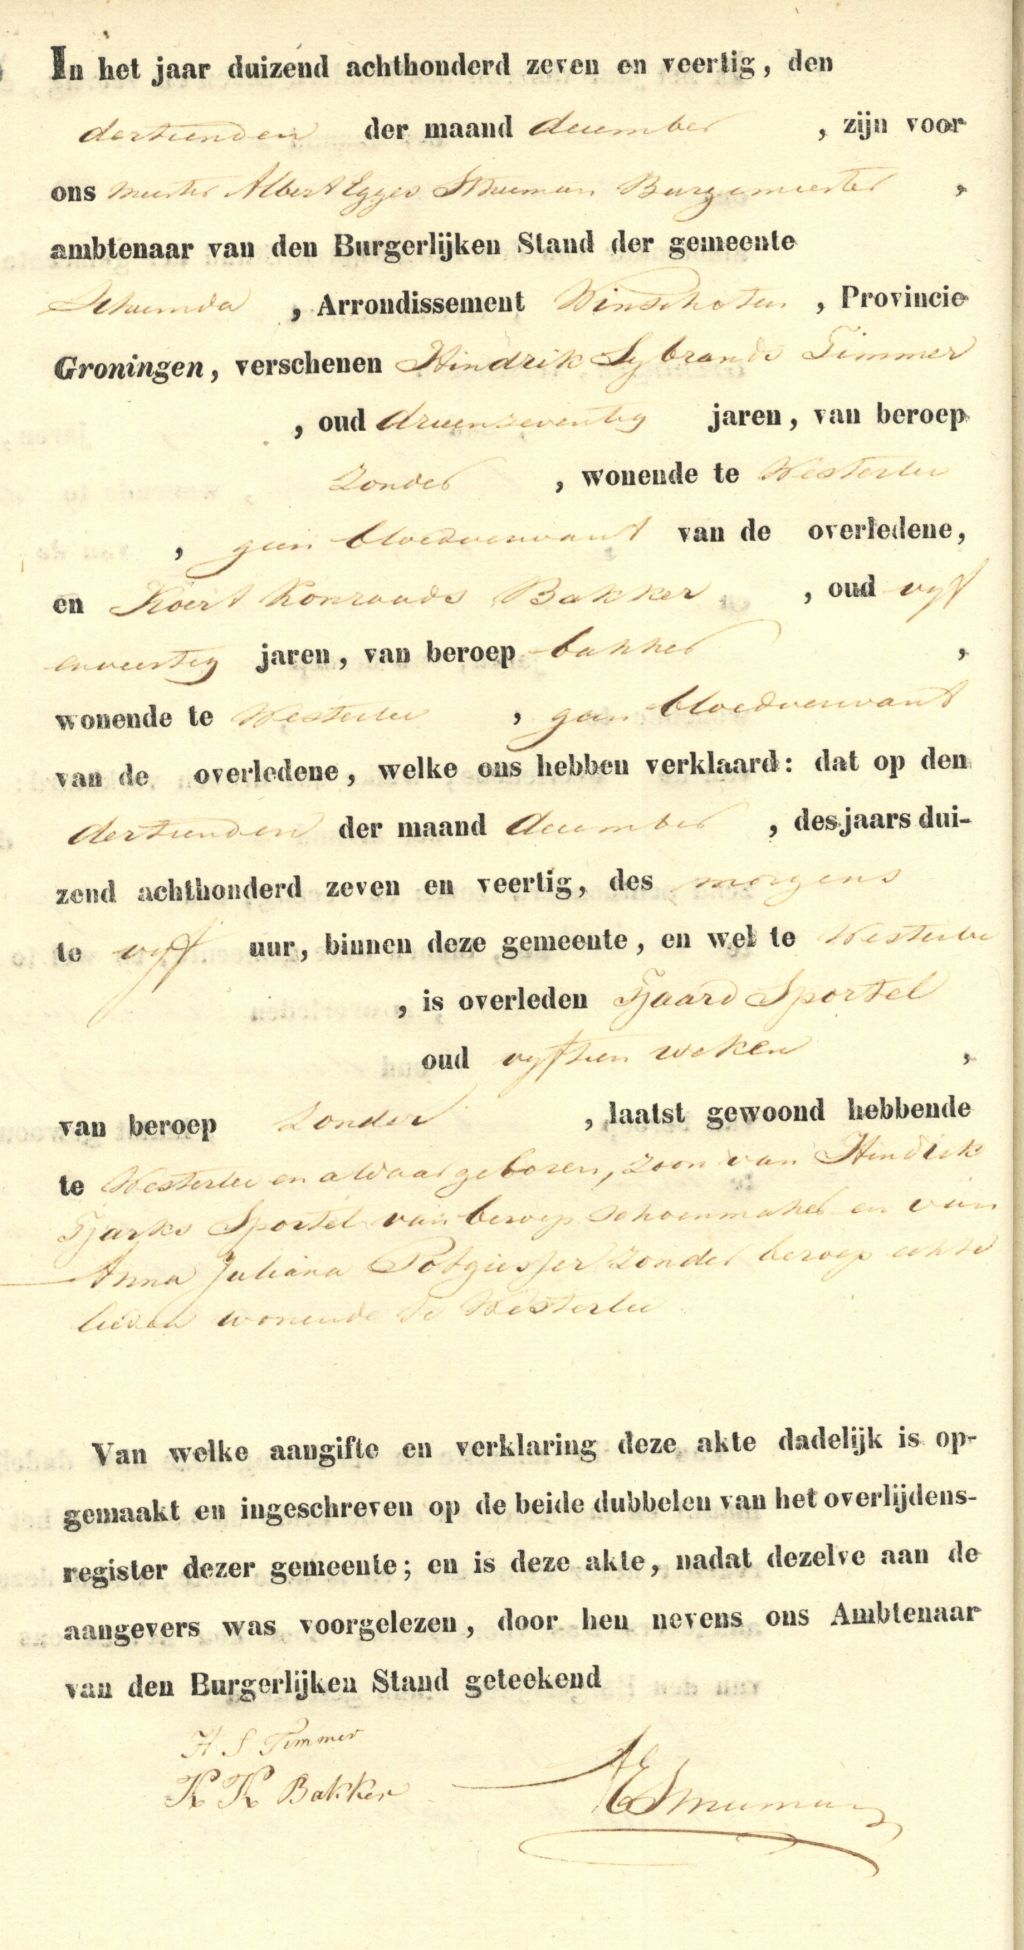 In het jaar duizend achthonderd zeven en veertig, den
dertienden der maand december, zijn voor
ons meester Albert Egges Struuman Burgemeester,
ambtenaar van den Burgerlijken Stand der gemeente
Scheemda, Arrondissement Winschoten, Provincie
Groningen, verschenen Hindrik Sybrands Timmer
, oud drieenzeventig jaren, van beroep
zonder, wonende te Westerlee
, geen bloedverwant van de overledene,
en Koert Konraads Bakker, oud vyf
enveertig jaren, van beroep bakker,
wonende te Westerlee, geen bloedverwant
van de overledene, welke ons hebben verklaard: dat op den
dertienden der maand december, des jaars dui-
zend achthonderd zeven en veertig, des morgens
te vyf uur, binnen deze gemeente, en wel te Westerlee
, is overleden Tjaard Sportel
oud vyftien weken,
van beroep zonder, laatst gewoond hebbende
te Westerlee en aldaar geboren, zoon van Hindrik
Tjarks Sportel van beroep schoenmaker en van
Anna Juliana Potgiesser zonder beroep echte
lieden wonende te Westerlee
Van welke aangifte en verklaring deze akte dadelijk is op-
gemaakt en ingeschreven op de beide dubbelen van het overlijdens-
register dezer gemeente; en is deze akte, nadat dezelve aan de
aangevers was voorgelezen, door hen nevens ons Ambtenaar
van den Burgerlijken Stand geteekend
H S Timmer
K K Bakker AEStruuman